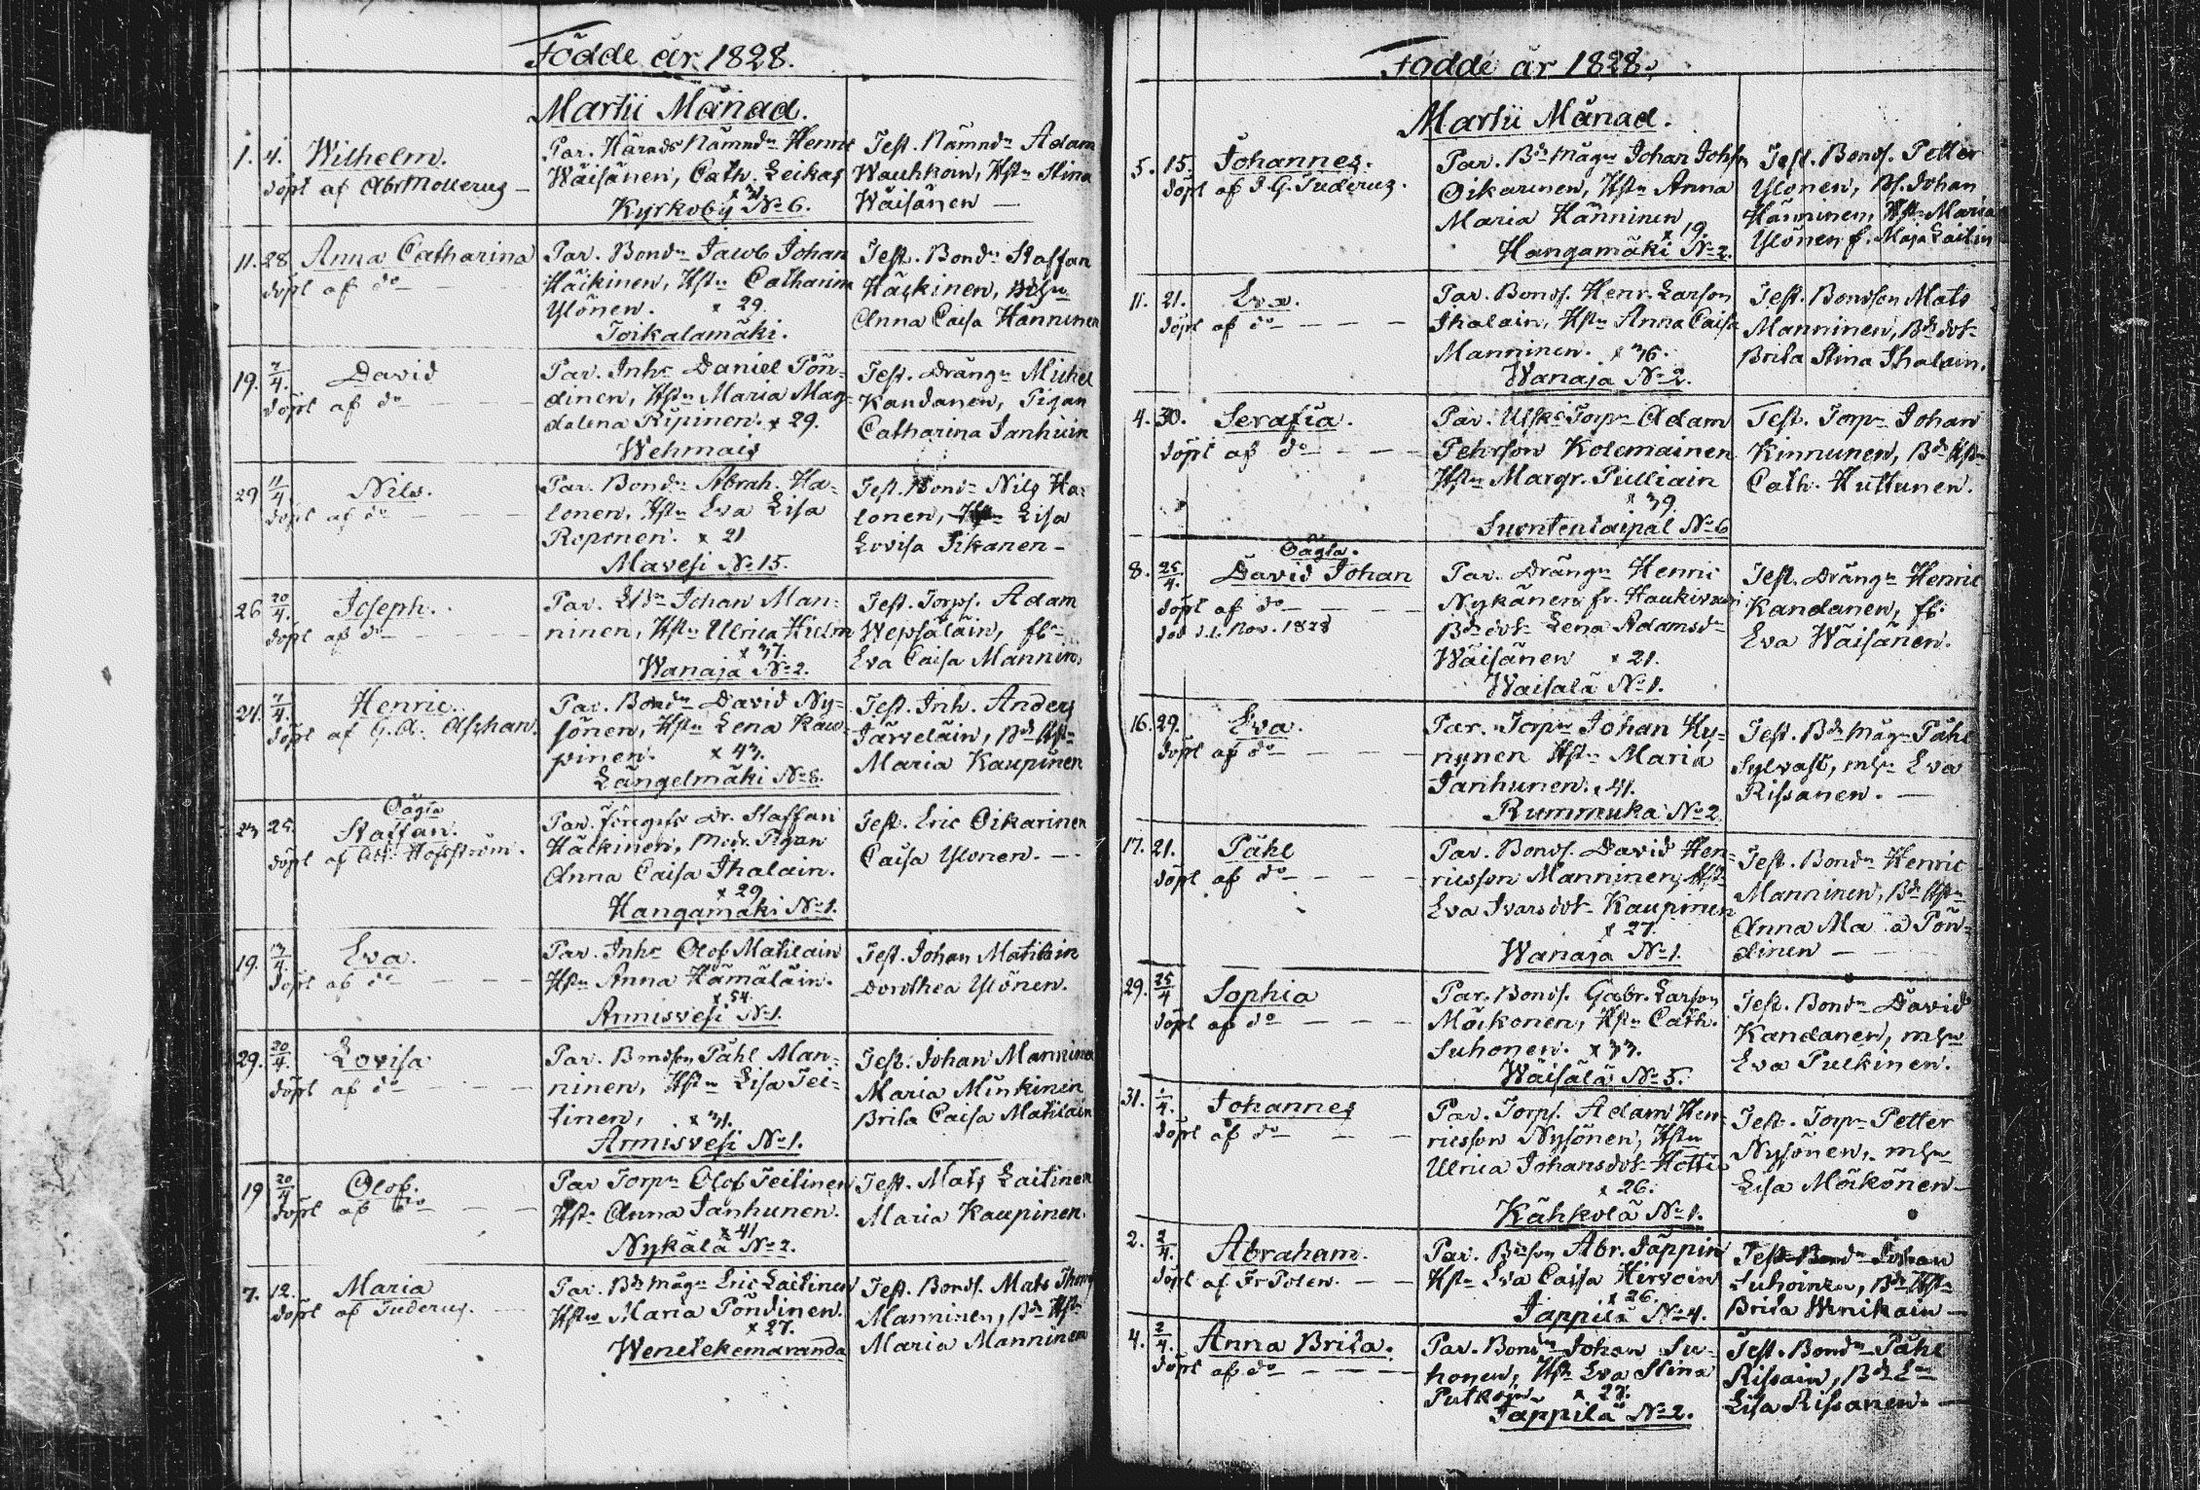 Födde år 1828.
Martii Månad.
1. 4. Wilhelm.
döpt af Abr Mollerus
Par. Härads Nämndn Henric
Wäisänen, Cath. Leikas
x 31
Kyrkoby No 6.
Test. Nämndn Adam
Wauhkoin, Hstn Stina
Wäisänen —
11. 28. Anna Catharina
döpt af do
Par. Bondn Jacob Johan
Häikinen, Hstn Catharina
Ylönen. x 29.
Toikalamäki.
Test. Bondn Staffan
Häikinen, mhu
Anna Caisa Hänninen
19. 7/4. David
döpt af do
Par. Inhs Daniel Pön-
dinen, Hstn Maria Mag-
dalena Ripinen. x 29.
Wehmais
Test. Drängn Michel
Kandanen, Pigan
Catharina Janhuin
29 11/4 Nils.
döpt af do
Par. Bondn Abrah. Ha-
lonen, Hstn Eva Lisa
Roponen. x 21
Mavesi No 15.
Test. Bondn Nils Ha-
lonen, Lisa
Lovisa Pikanen —
26 20/4. Joseph.
döpt af do
Par. Johan Man-
ninen, Hstn Ulrica Hielm
x 37.
Wanaja No 2.
Test. Torps. Adam
Wepsäläin,
Eva Caisa Mannin.
24. 7/4. Henric.
döpt af G. A. Aschan.
Par. Bondn David Ny-
sönen, Hstn Lena Kau-
pinen. x 43.
Längelmäki No 8.
Test. Inh. Anders
Järveläin, Bd Hstn
Maria Kaupinen
23 25. Oägta
Staffan.
döpt af Hoffström.
Par. föregifv Dr. Staffan
Häckinen, Modr. Pigan
Anna Caisa Ihalain.
x 29
Hangamäki No 1.
Test. Eric Oikarinen
Caisa Ylonen. —
19. 13/4. Eva.
döpt af do
Par. Inhs Olof Matilain
Hstn Anna Hämäläin.
x 54.
Armisvesi No 1.
Test. Johan Matilain
Dorothea Ylönen.
29. 20/4. Lovisa
döpt af do
Par. Bondson Påhl Man-
ninen, Hstn Lisa Tei-
tinen, x 31.
Armisvesi No 1.
Test. Johan Manninen
Maria Minkinen
Brita Caisa Matilain
19 20/4 Olof.
döpt af do
Par Torpn Olof Teitinen
Hstn Anna Janhunen.
x 41
Nykälä No 2.
Test. Mats Laitinen
Maria Kaupinen.
7. 12. Maria
döpt af Tuderus.
Par. Bd mågn Eric Laitinen
Hstn Maria Pöndinen.
x 27.
Wenetekemaranda
Test. Bonds. Mats Thoms
Manninen, Bd Hstn
Maria Manninen
Födde år 1828.
Martii Månad.
5. 15. Johannes.
döpt af J. G. Tuderus.
Par. Bd mågn Johan Johsn
Oikarinen, Hstn Anna
Maria Hänninen
x 19.
Hangamäki No 2.
Test. Bonds. Petter
Ylonen, Bs. Johan
Hänninen, Hstn Maria
Ylönen f. Maja Laitin
11. 21. Eva.
döpt af do
Par. Bonds. Henr. Larson
Ihalain, Hstn Anna Caisa
Manninen. x 36.
Wanaja No 2.
Test. Bondson Mats
Manninen, Bd dotr
Brita Stina Ihalain.
4. 30. Serafia.
döpt af do
Par. Utsk. Torpn Adam
Pehrson Kolemainen
Hstn Margr. Pulliain
x 39.
Suontentaipal No 6
Test. Torpn Johan
Kinnunen, Bd Hstn
Cath. Huttunen.
8. 25/4. Oägta.
David Johan
döpt af do
död d. 1. Nov. 1828
Par. Drängn Henric
Nykänen fr. Haukivuori
Bd dotr Lena Adamsdr
Wäisänen x 21.
Waisala No 1.
Test. Drängn Henric
Kandanen,
Eva Wäisänen.
16. 29. Eva.
döpt af do
Par. Torpn Johan Hy-
nynen Hstn Maria
Janhunen. x 41.
Rummuka No 2
Test. Bd mågn Påhl
Sylvast, mhu Eva
Rissanen. —
17. 21. Påhl
döpt af do
Par. Bonds. David Hen-
ricsson Manninen, Hstn
Eva Ivarsdotr Kaupinen
x 27.
Wanaja No 1.
Test. Bondn Henric
Manninen, Bd Hstn
Anna Ma a Pön-
dinen —
29. 25/4 Sophia
döpt af do
Par. Bonds. Gabr. Larson
Möikonen, Hstn Cath.
Suhonen. x 33.
Wäisälä No 5.
Test. Bondn David
Kandanen, mhu
Eva Pulkinen.
31. 1/4. Johannes
döpt af do
Par. Torps. Adam Hen-
ricsson Nysönen, Hstn
Ulrica Johansdotr Hotti
x 26.
Kähkölä No 1.
Test. Torpn Petter
Nysönen, mhu
Lisa Möikönen —
2. 2/4. Abraham.
döpt af Fr Polen.
Par. Bdson Abr. Jäppin
Hstn Eva Caisa Hirvoin
x 26.
Jappilä No 4.
Test. Bondn Johan
Suhoinen, Bd Hstn
Brita —
4. 2/4. Anna Brita.
döpt af do
Par. Bondn Johan Su-
honen, Hstn Eva Stina
Putkoin x 27.
Jäppilä No 2.
Test. Bondn Påhl
Rissain,
Lisa Rissanen. —